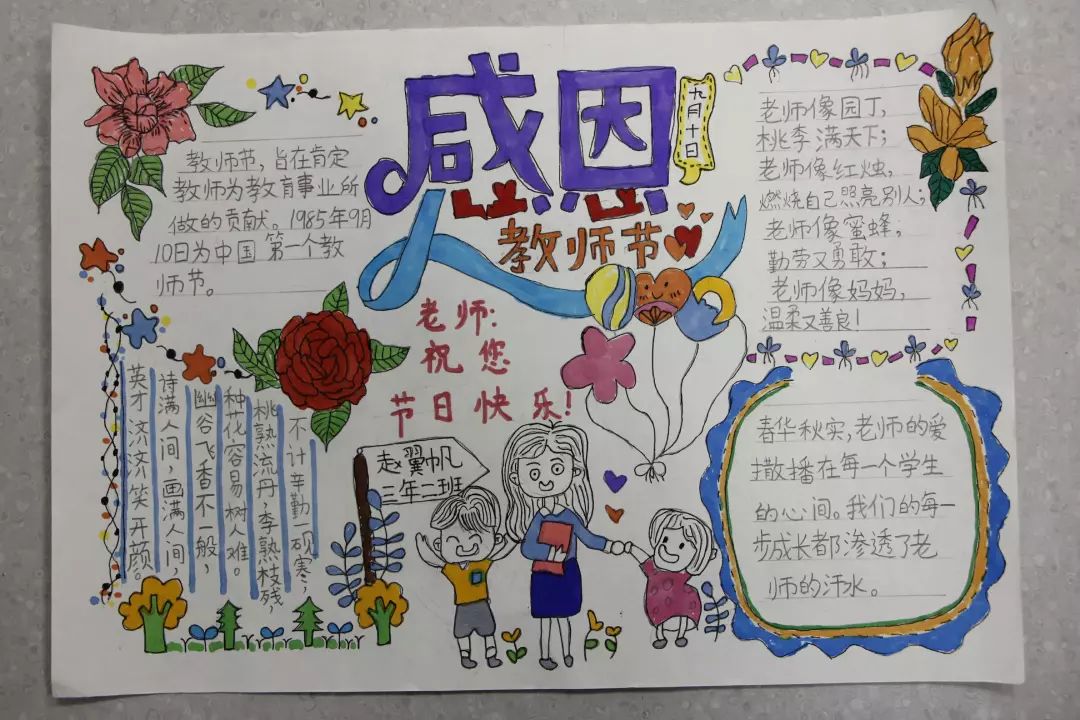 感恩
九月十日
教师节
教师节，旨在肯定
教师为教育事业所
做的贡献。1985年9月
10日为中国第一个教
师节。
老师:
祝您
节日快乐!
老师像园丁，
桃李满天下；
老师像红烛，
燃烧自己照亮别人；
老师像蜜蜂；
勤劳又勇敢；
老师像妈妈，
温柔又善良！
不计辛勤一砚寒，
桃熟流丹，李熟枝残，
种花容易树人难。
幽谷飞香不一般，
诗满人间，画满人间，
英才济济笑开颜。
赵翼帆
三年二班
春华秋实，老师的爱
撒播在每一个学生
的心间。我们的每一
步成长都渗透了老
师的汗水。